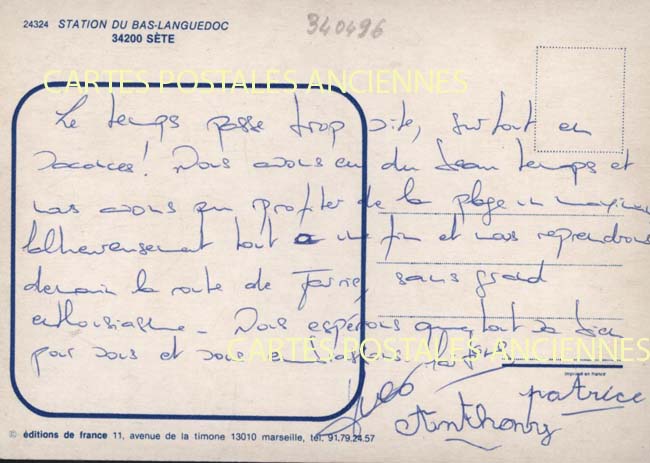 24324 STATION DU BAS-LANGUEDOC
34200 SÈTE
340496
CARTES POSTALES ANCIENNES
Le temps passe trop vite, surtout en
vacances! Nous avons eu du beau temps et
nous avons pu profiter de la plage un maximum
Malheureusement tout a une fin et nous reprendrons
demain la route de sans grand
enthousiasme - Nous espérons que tout va bien
pour vous et vous
CARTES POSTALES ANCIENNES
imprimé en france
Yves
patrice
Anthony
© éditions de france 11, avenue de la timone 13010 marseille, tél. 91.79.24.57